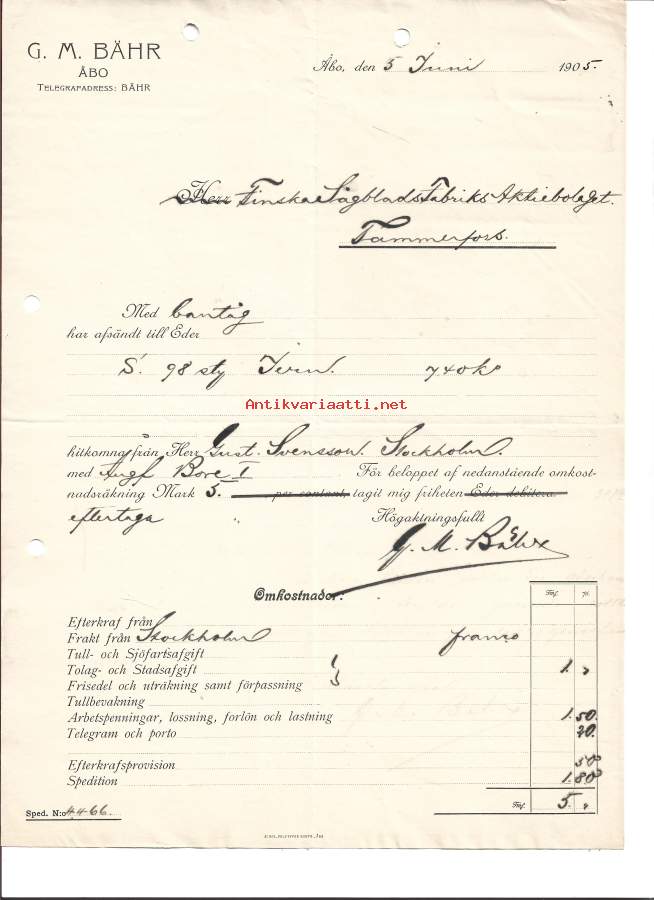 G. M. BÄHR
ÅBO
TELEGRAFADRESS: BÄHR
Åbo, den 5 Juni 1905.
Herr Finska Sågblads Fabriks Aktiebolaget.
Tammerfors.
Med bantåg
har afsändt till Eder
S. 98 sty Jern. 740 ko
Antikvariaatti.net
hitkomna från Herr Gust. Svensson. Stockholm.
med Angf Bore I För beloppet af nedanstående omkost-
nadsräkning Mark 5. per contant, tagit mig friheten Eder debitera.
eftertaga " Högaktningsfullt
G. M. Bähr
Omkostnader:
Fmf. pi.
Efterkraf från
Frakt från Stockholm franco
Tull- och Sjöfartsafgift
Tolag- och Stadsafgift 1 "
Frisedel och uträkning samt förpassning
Tullbevakning
Arbetspenningar, lossning, forlön och lastning 1.50.
Telegram och porto 20.
Efterkrafsprovision 50
Spedition 1.80
Sped. N:o 4466. Fmf. 5 "